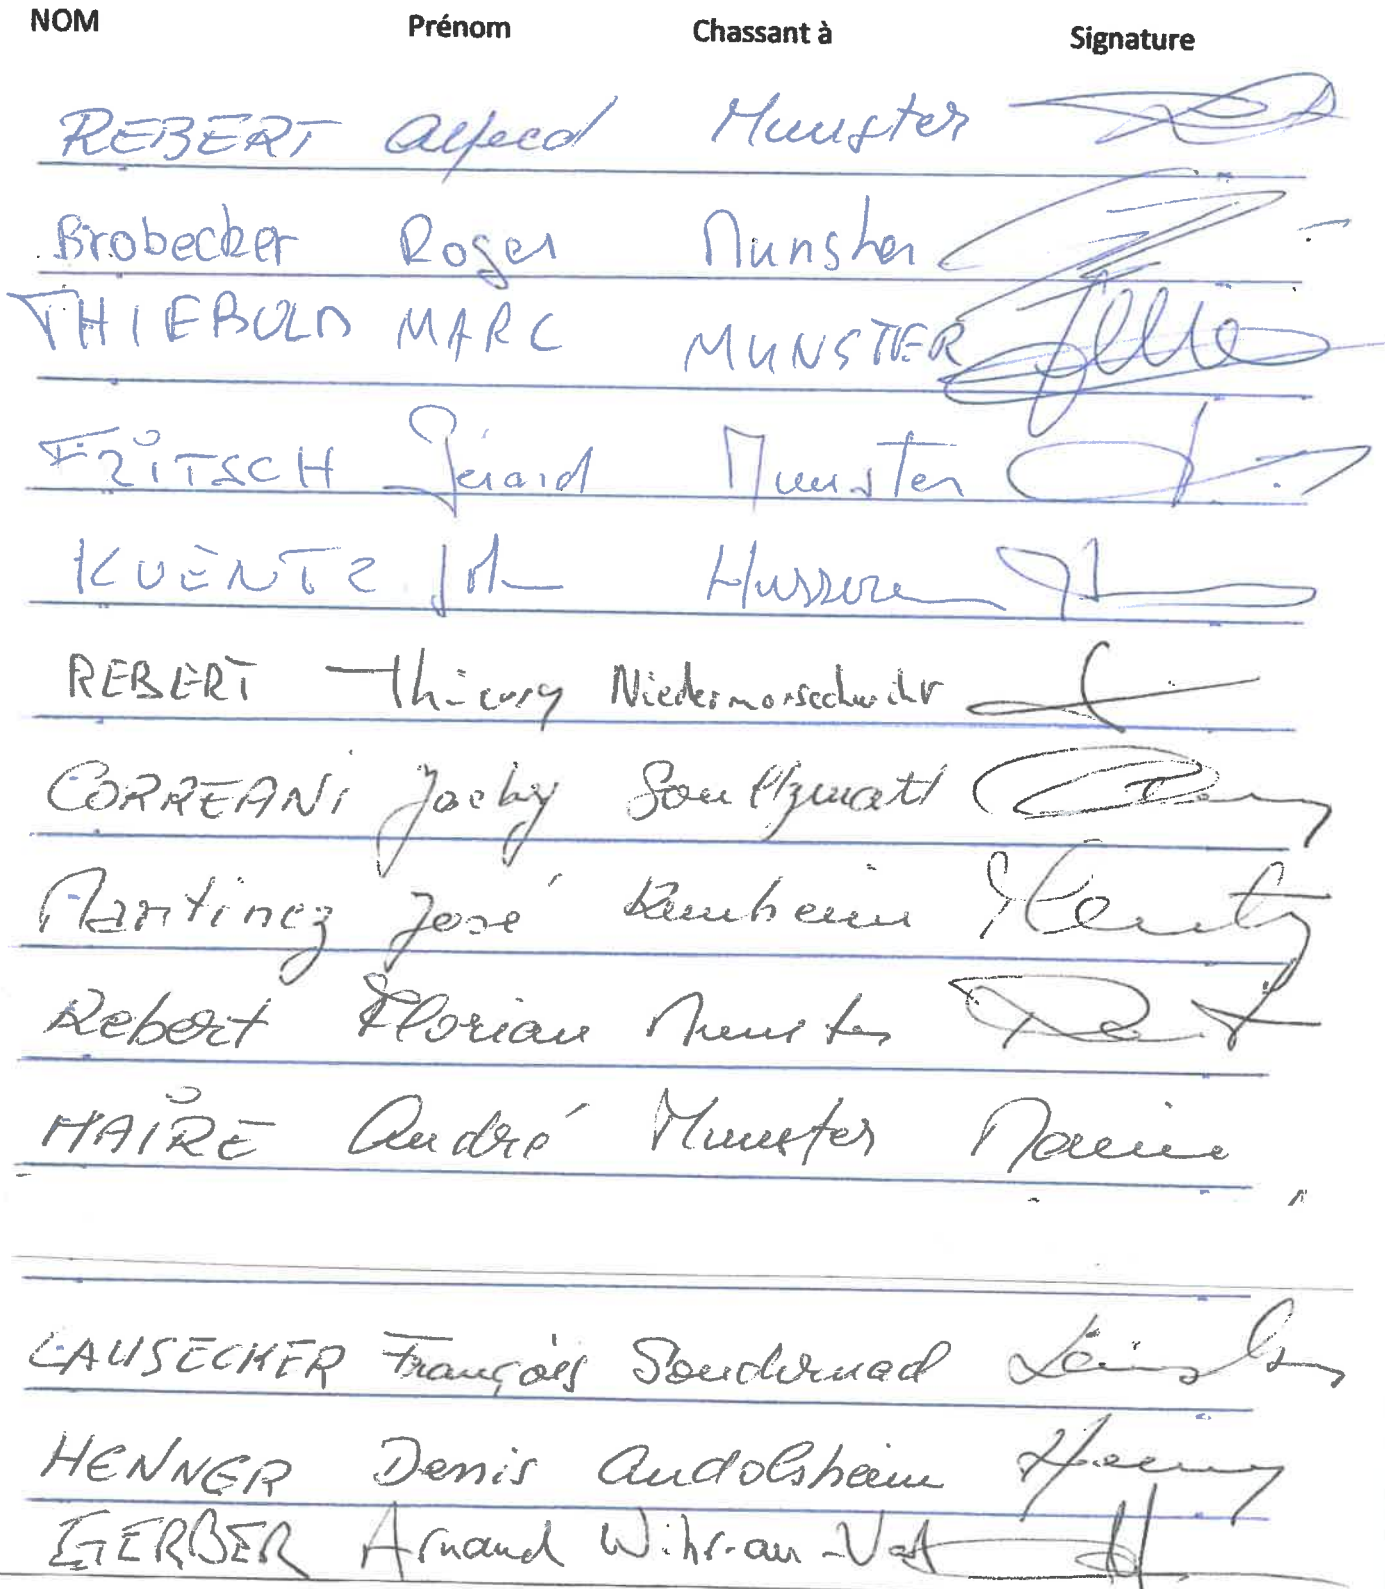 NOM Prénom Chassant à Signature
REBERT Alfred Munster
Brobecker Roger Munster
THIEBOLD MARC MUNSTER
FRITSCH Gérard Munster
KUENTZ Husseren
REBERT Thierry Niedermorschwihr
CORREANI Jacky Soultzmatt
Martinez José Kunheim
Rebert Florian Munster
MAIRE André Munster
LAUSECKER François Sondernad
HENNER Denis Andolsheim
GERBER Arnaud Wihr-au-Val